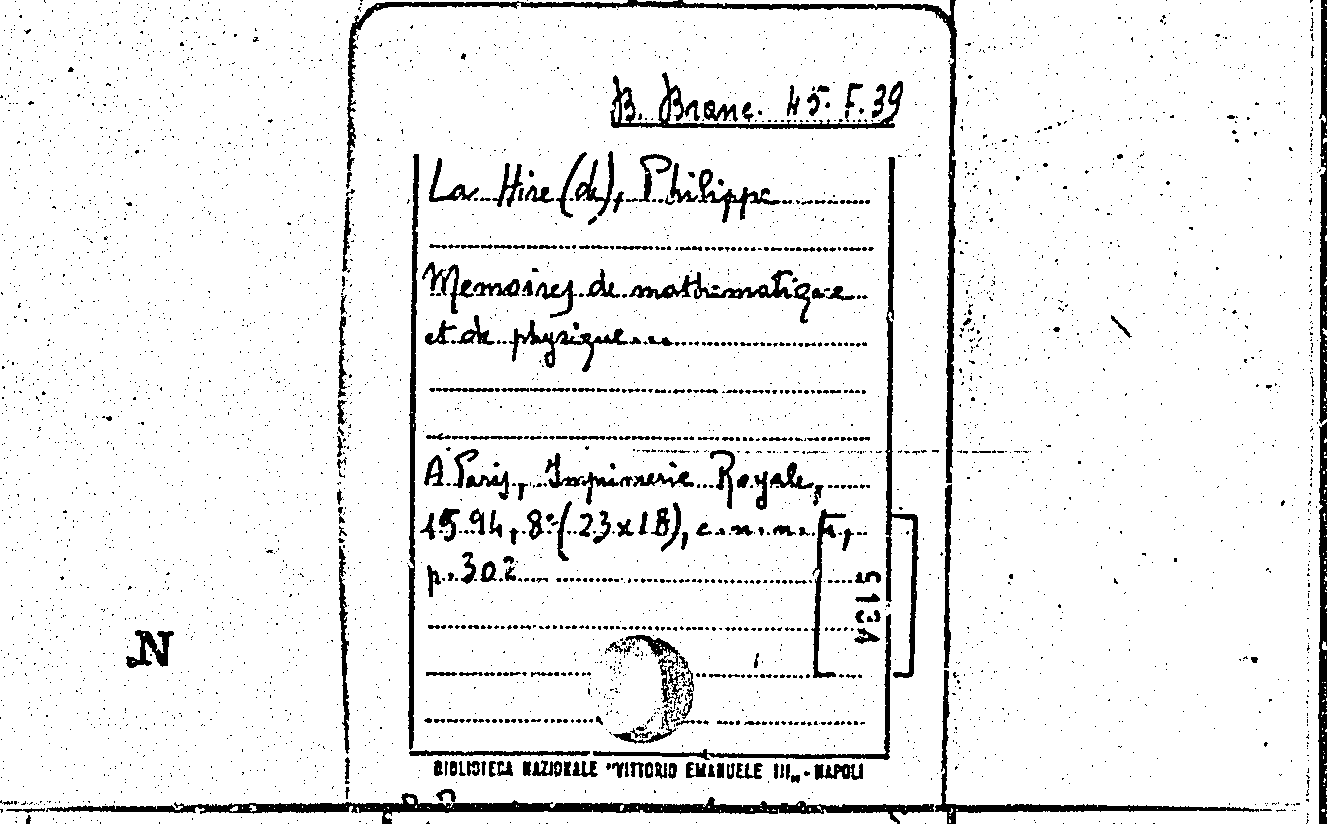 B. Branc. 45. F. 39
La Hire (de), Philippe
Memoires de mathematique
et de physique....
A Paris, Imprimerie Royale,
1594, 8° (23x18), c.n.n.
p. 302
5134
N
BIBLIOTECA NAZIONALE "VITTORIO EMANUELE III„ - NAPOLI